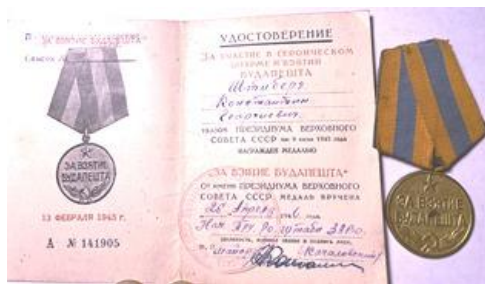 "ЗА ВЗЯТИЕ БУДАПЕШТА"
ЗА ВЗЯТИЕ
БУДАПЕШТА
13 ФЕВРАЛЯ 1945 г.
А № 141905
УДОСТОВЕРЕНИЕ
ЗА УЧАСТИЕ В ГЕРОИЧЕСКОМ
ШТУРМЕ И ВЗЯТИИ
БУДАПЕШТА
Константин
Георгиевич
УКАЗОМ ПРЕЗИДИУМА ВЕРХОВНОГО
СОВЕТА СССР от 9 июня 1945 года
НАГРАЖДЕН МЕДАЛЬЮ
"ЗА ВЗЯТИЕ БУДАПЕШТА"
От имени ПРЕЗИДИУМА ВЕРХОВНОГО
СОВЕТА СССР МЕДАЛЬ ВРУЧЕНА
26 Апреля 1946 года
М. П. майор
ЗА ВЗЯТИЕ
БУДАПЕШТА